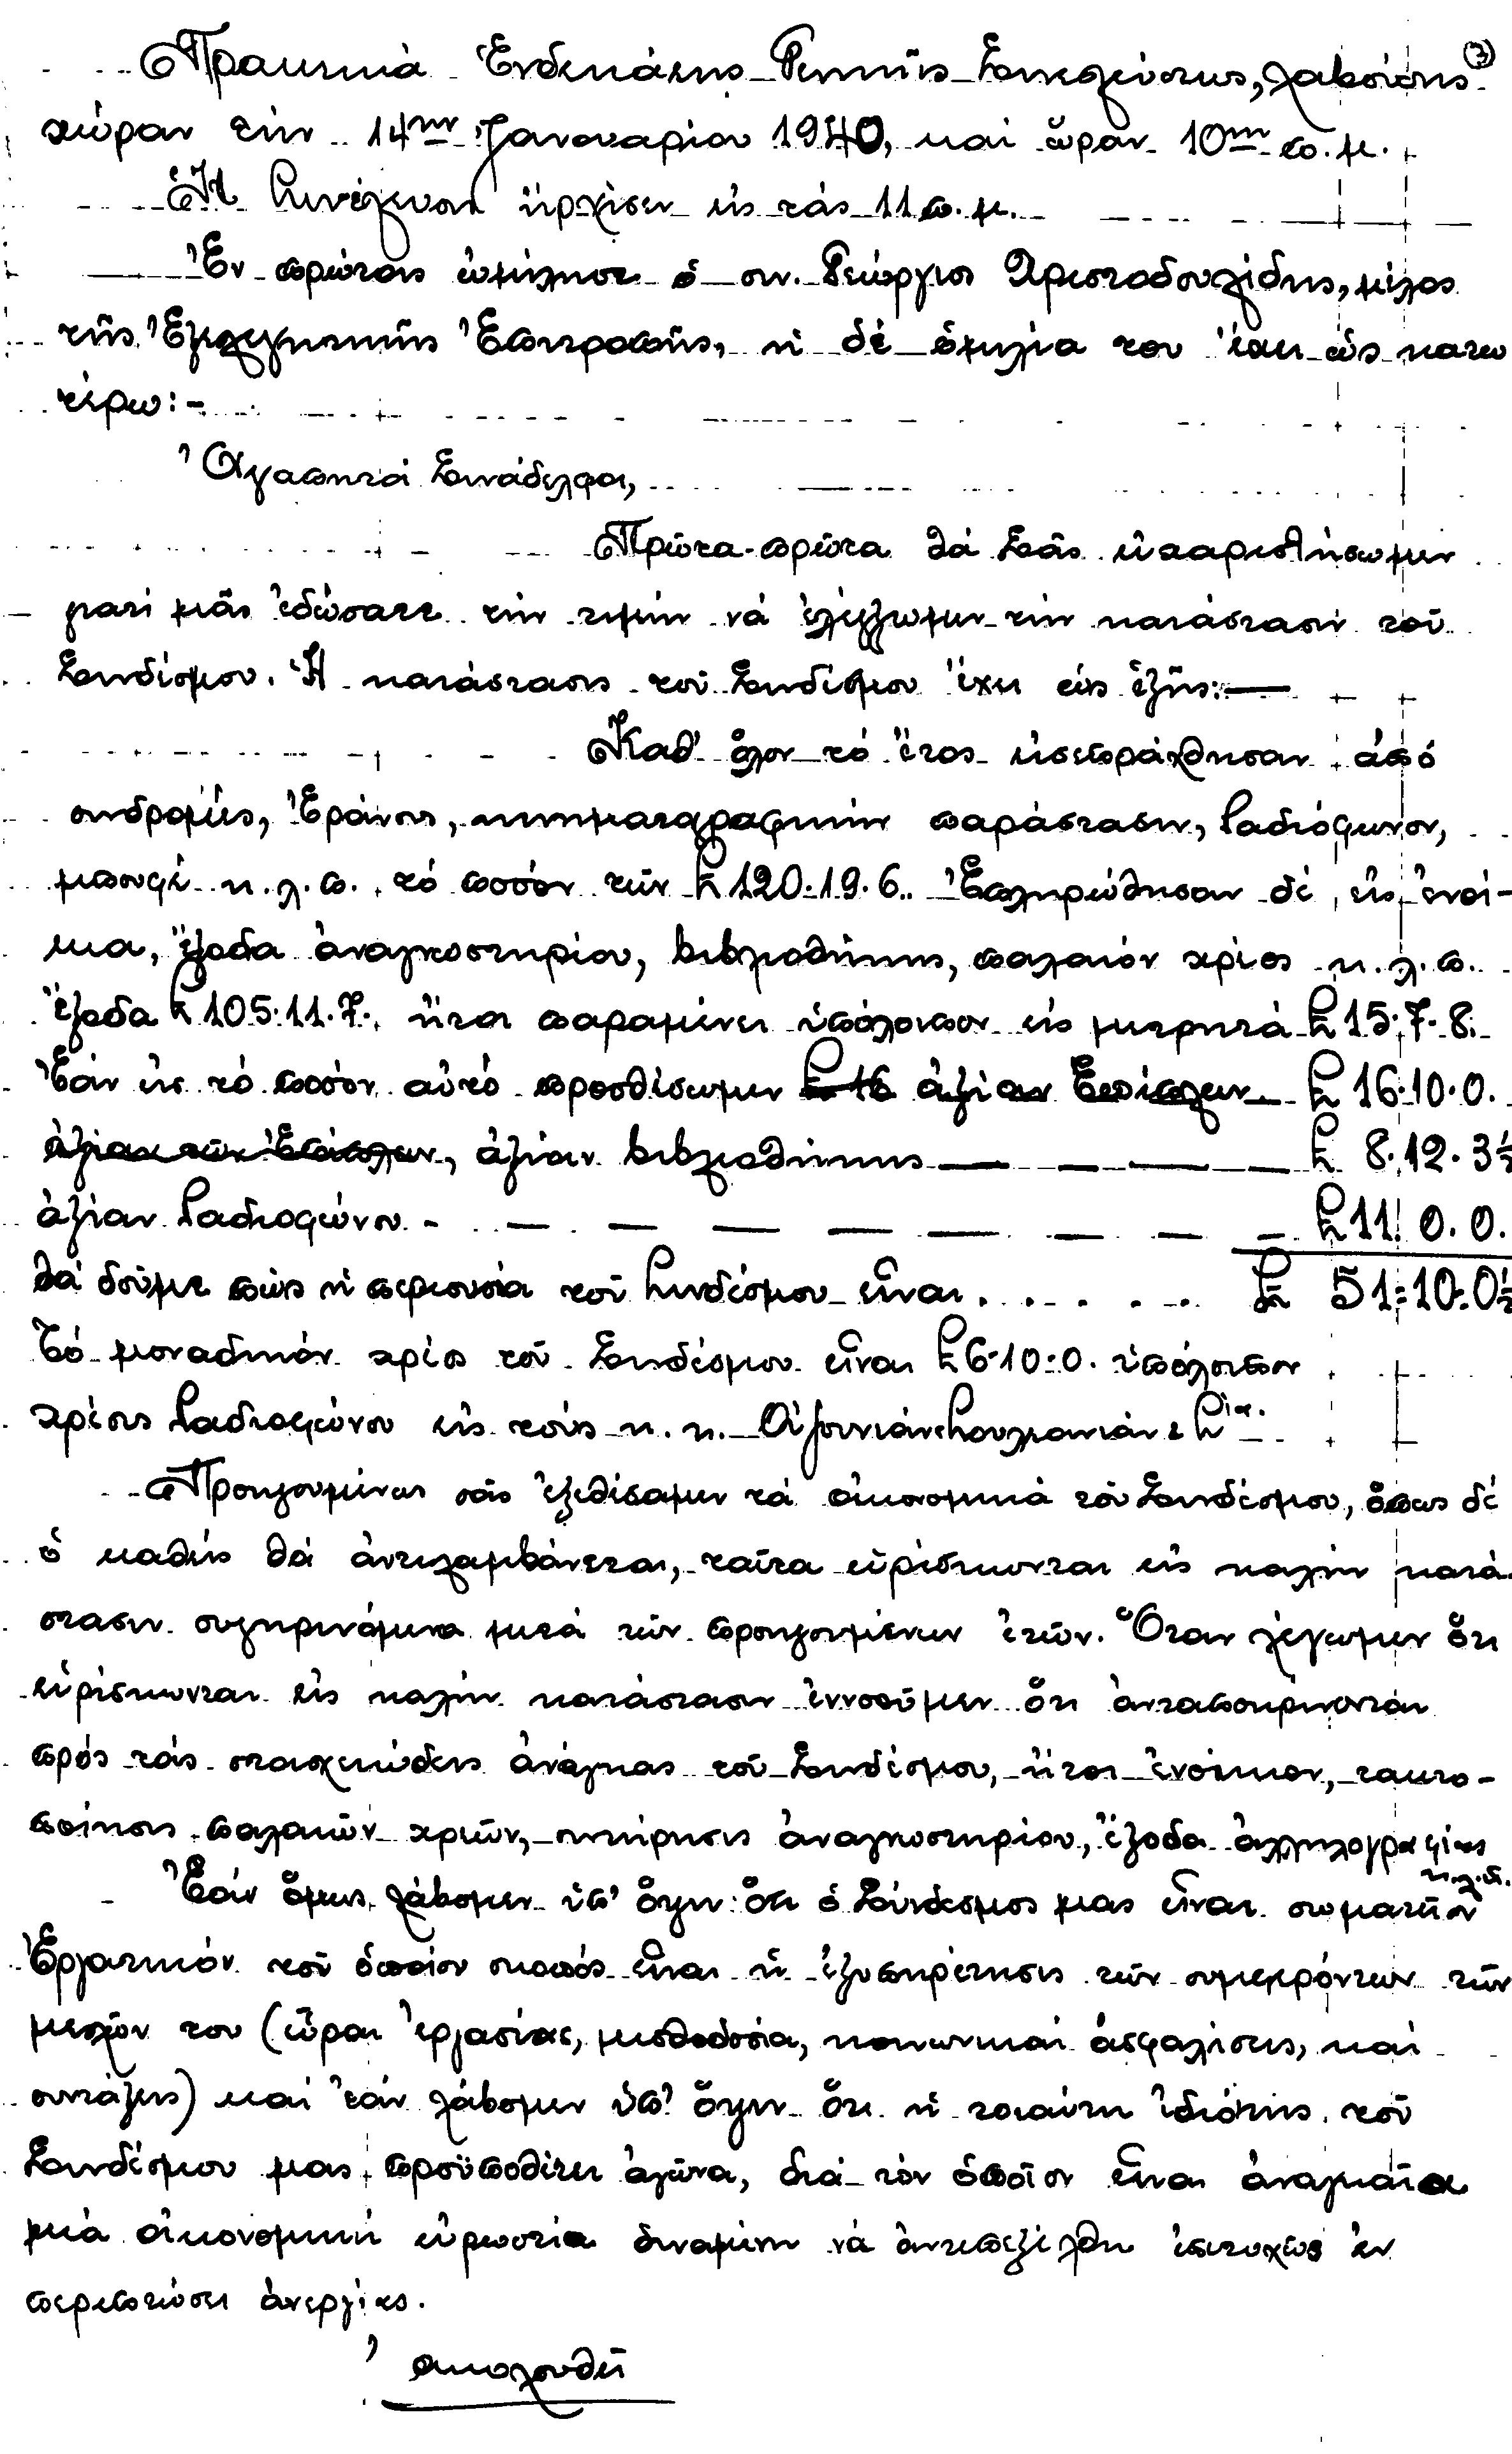 Πρακτικά Ἑνδεκάτης Γενικῆς Συνελεύσεως, λαβούσης (7)
χώραν τήν 14ην Ἰανουαρίου 1940, καί ὥραν 10ην π.μ.
Ἡ Συνέλευση ἤρχισεν εἰς τάς 11 π.μ.
Ἐν πρώτοις ὡμίλησε ὁ συν. Γεώργιος Χριστοδουλίδης, μέλος
τῆς Ἐξελεγκτικῆς Ἐπιτροπῆς, ἡ δέ ὁμιλία του ἔχει ὡς κατω
τέρω:-
Ἀγαπητοί Συνάδελφοι,
Πρῶτα-πρῶτα θά Σᾶς εὐχαριστήσωμεν
γιατί μᾶς ἐδώσατε τήν τιμήν νά ἐλέγξωμεν τήν κατάστασιν τοῦ
Συνδέσμου. Ἡ κατάστασις τοῦ Συνδέσμου ἔχει εἰς ἑξῆς:—
Καθ' ὅλον τό ἔτος εἰσεπράχθησαν ἀπό
συνδρομές, Ἐράνους, κινηματογραφικήν παράστασιν, ραδιόφωνον,
μπουφέ κ.λ.π. τό ποσόν τῶν £120.19.6. Ἐπληρώθησαν δέ εἰς ἐνοί-
κια, ἔξοδα ἀναγνωστηρίου, βιβλιοθήκης, παλαιόν χρέος κ.λ.π.
ἔξοδα £105.11.7. ἤτοι παραμένει ὑπόλοιπον εἰς μετρητά £15.7.8.
Ἐάν εἰς τό ποσόν αὐτό προσθέσωμεν £16 ἀξίαν Ἐπίπλων — £16.10.0.
ἀξίαν τῶν ἐπίπλων, ἀξίαν βιβλιοθήκης — — — — £ 8.12.3½
ἀξίαν ραδιοφώνου - — — — — — — — — £11. 0.0.
θά δοῦμε πώς ἡ περιουσία τοῦ Συνδέσμου εἶναι . . . . . . £ 51:10:0½
Τό μοναδικόν χρέος τοῦ Συνδέσμου εἶναι £6.10:0. ὑπόλοιπον
χρέους ραδιοφώνου εἰς τούς κ.κ. & Σία.
Προηγουμένως σᾶς ἐξεθέσαμεν τά οἰκονομικά τοῦ Συνδέσμου, ὅπως δέ
ὁ καθείς θά ἀντιλαμβάνεται, ταῦτα εὑρίσκονται εἰς καλήν κατά
στασιν συγκρινόμενα μετά τῶν προηγουμένων ἐτῶν. Ὅταν λέγωμεν ὅτι
εὑρίσκωνται εἰς καλήν κατάστασιν ἐννοοῦμεν ὅτι ἀνταποκρίνονται
πρός τάς στοιχειώδεις ἀνάγκας τοῦ Συνδέσμου, ἤτοι ἐνοίκιον, τακτο-
ποίησις παλαιῶν χρεῶν, συντήρησις ἀναγνωστηρίου, ἔξοδα ἀλληλογραφίας
κ.λ.π.
Ἐάν ὅμως λάβομεν ὑπ' ὄψιν ὅτι ὁ Σύνδεσμος μας εἶναι σωματεῖον
Ἐργατικόν τοῦ ὁποίου σκοπός εἶναι ἡ ἐξυπηρέτησις τῶν συμφερόντων τῶν
μελῶν του (ὧραι ἐργασίας, μισθοδοσία, κοινωνικαί ἀσφαλίσεις, καί
συντάξεις) καί ἐάν λάβομεν ὑπ' ὄψιν ὅτι ἡ τοιαύτη ἰδιότης τοῦ
Συνδέσμου μας προϋποθέτει ἀγῶνα, διά τόν ὁποῖον εἶναι ἀναγκαῖα
μιά οἰκονομική εὐρωστία δυναμένη νά ἀντεπεξέλθη ἐπιτυχῶς ἐν
περιπτώσει ἀνεργίας.
ἀκολουθεῖ